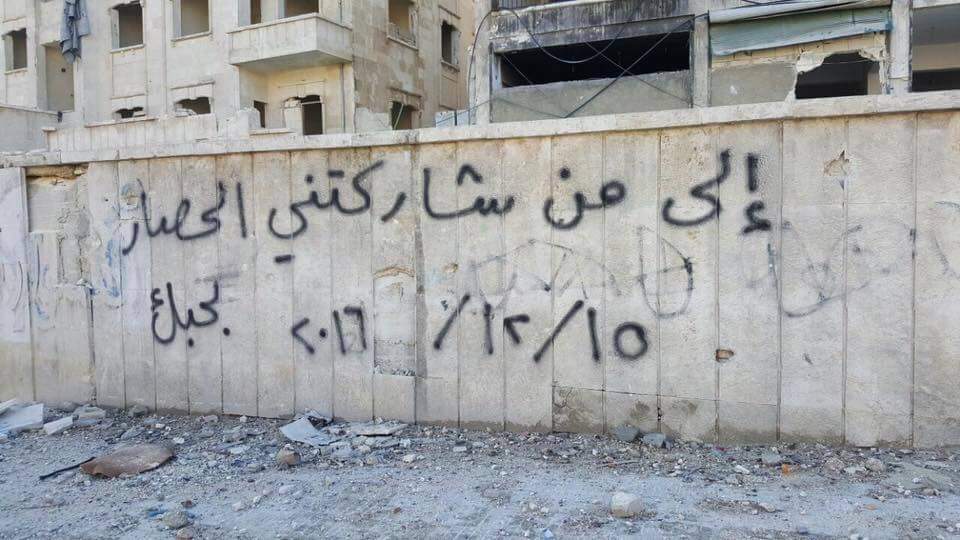 إلى من شاركتني الحصار
١٥/١٢/٢٠١٦ بحبك